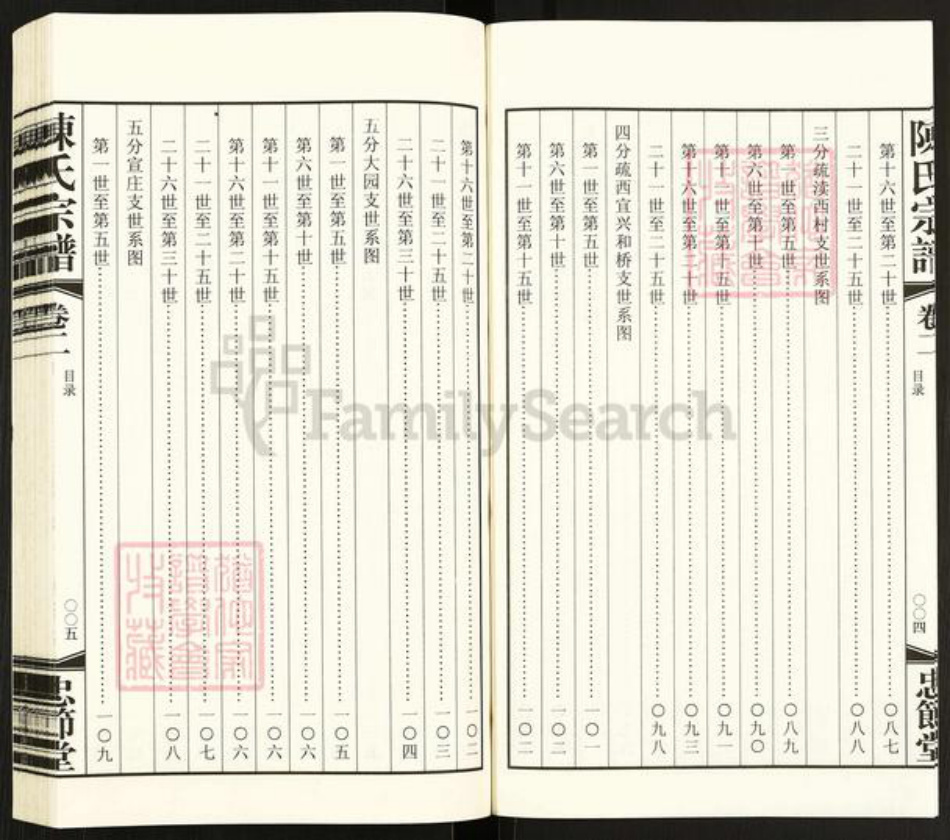 陳氏宗譜
卷二
目录
〇〇四
忠節堂
第十六世至第二十世 〇八七
二十一世至二十五世 〇八八
三分疏渎西村支世系图
第一世至第五世 〇八九
第六世至第十世 〇九〇
第十一世至第十五世 〇九一
第十六世至第二十世 〇九三
二十一世至二十五世 〇九八
四分疏西宜兴和桥支世系图
第一世至第五世 一〇一
第六世至第十世 一〇二
第十一世至第十五世
第十六世至第二十世
二十一世至二十五世 一〇三
二十六世至第三十世 一〇四
五分大园支世系图
第一世至第五世 一〇五
第六世至第十世 一〇六
第十一世至第十五世 一〇六
第十六世至第二十世 一〇六
二十一世至二十五世 一〇七
二十六世至第三十世 一〇八
五分宣庄支世系图
第一世至第五世 一〇九
陳氏宗譜
卷二
目录
〇〇五
忠節堂
FamilySearch